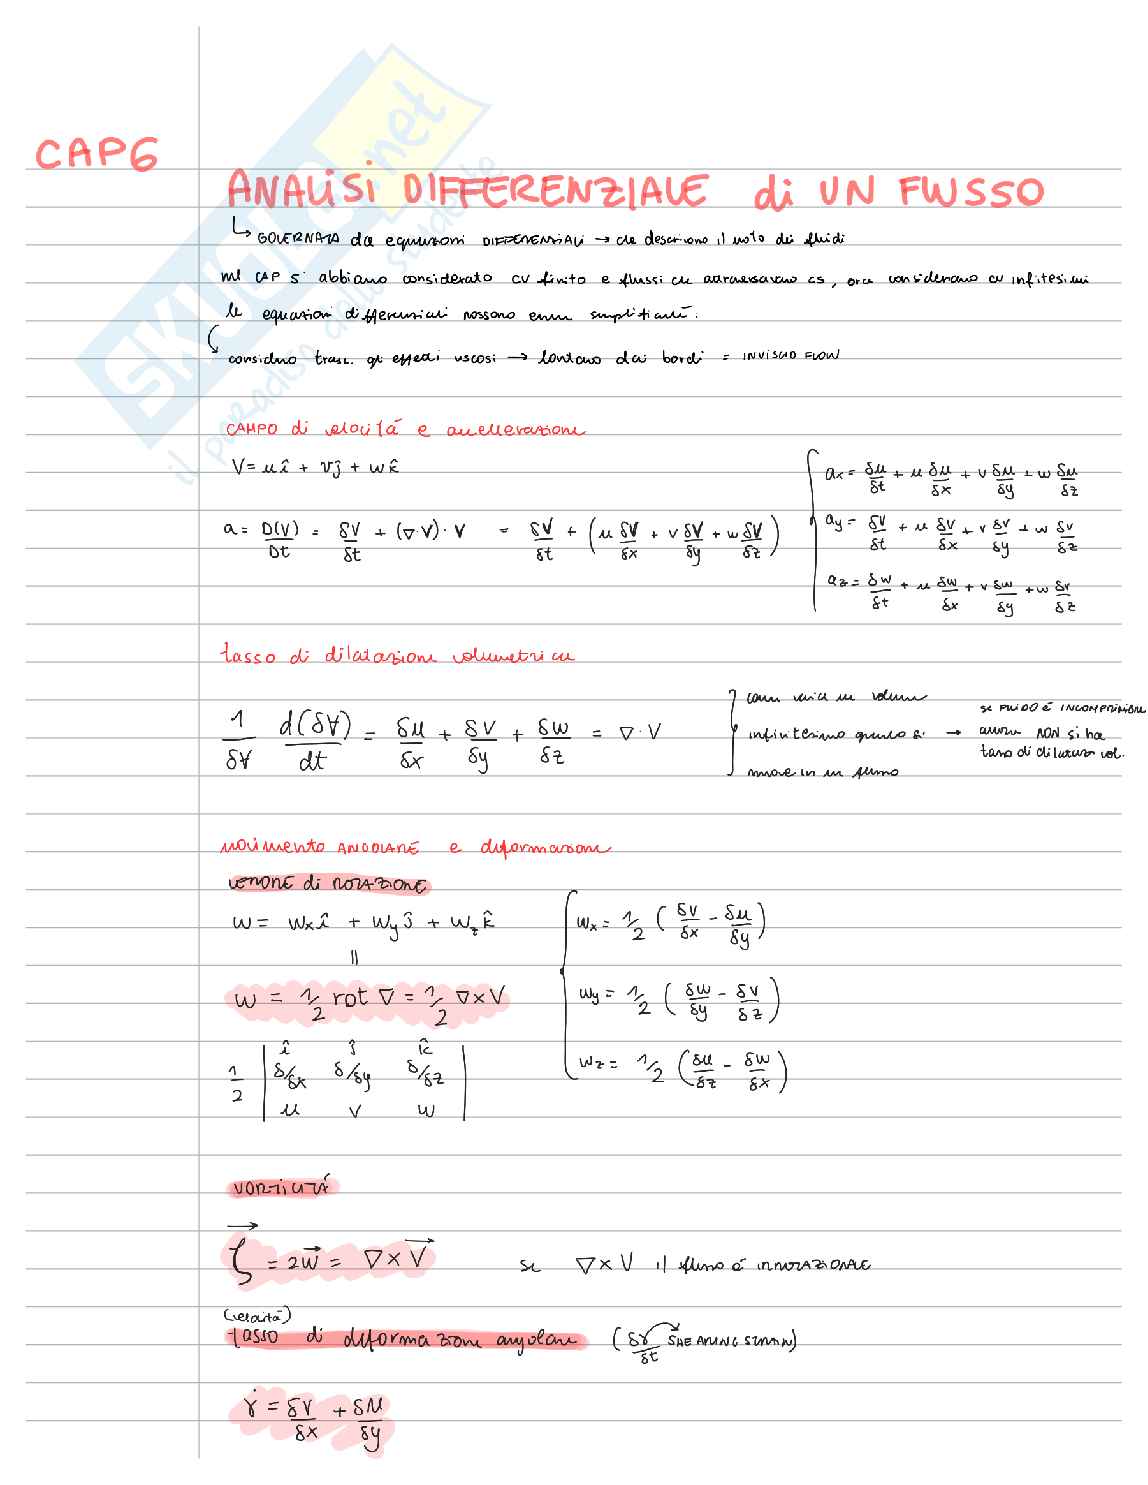 SKUOLA.net
il paradiso dello studente
CAP6
ANALISI DIFFERENZIALE di UN FLUSSO
↳ GOVERNATA da equazioni DIFFERENZIALI → che descrivono il moto dei fluidi
nel CAP 5 abbiamo considerato CV finito e flussi che attraversavano CS, ora consideriamo CV infitesimi
le equazioni differenziali possono essere semplificate.
considero trasc. gli effetti viscosi → lontano dai bordi = INVISCID FLOW
CAMPO di velocità e accellerazione
V = u î + v ĵ + w k̂
a = D(V)/Dt = δV/δt + (∇·V)·V = δV/δt + (u δV/δx + v δV/δy + w δV/δz)
ax = δu/δt + u δu/δx + v δu/δy + w δu/δz
ay = δv/δt + u δv/δx + v δv/δy + w δv/δz
az = δw/δt + u δw/δx + v δw/δy + w δv/δz
tasso di dilatazione volumetrica
1/δV d(δV)/dt = δu/δx + δv/δy + δw/δz = ∇·V
come varia un volume
infinitesimo quando si →
muove in un flusso
se FLUIDO È INCOMPRIMIBILE
allora NON si ha
tasso di dilataz vol.
movimento ANGOLARE e deformazione
VETTORE di ROTAZIONE
w = wx î + wy ĵ + wz k̂
=
w = 1/2 rot ∇ = 1/2 ∇×V
1/2 | î ĵ k̂
δ/δx δ/δy δ/δz
u v w |
wx = 1/2 (δv/δx - δu/δy)
wy = 1/2 (δw/δy - δv/δz)
wz = 1/2 (δu/δz - δw/δx)
VORTICITÁ
ζ = 2w = ∇×V se ∇×V il flusso é IRROTAZIONALE
(velocità)
tasso di deformazione angolare (δγ/δt SHEARING STRAIN)
γ̇ = δv/δx + δu/δy